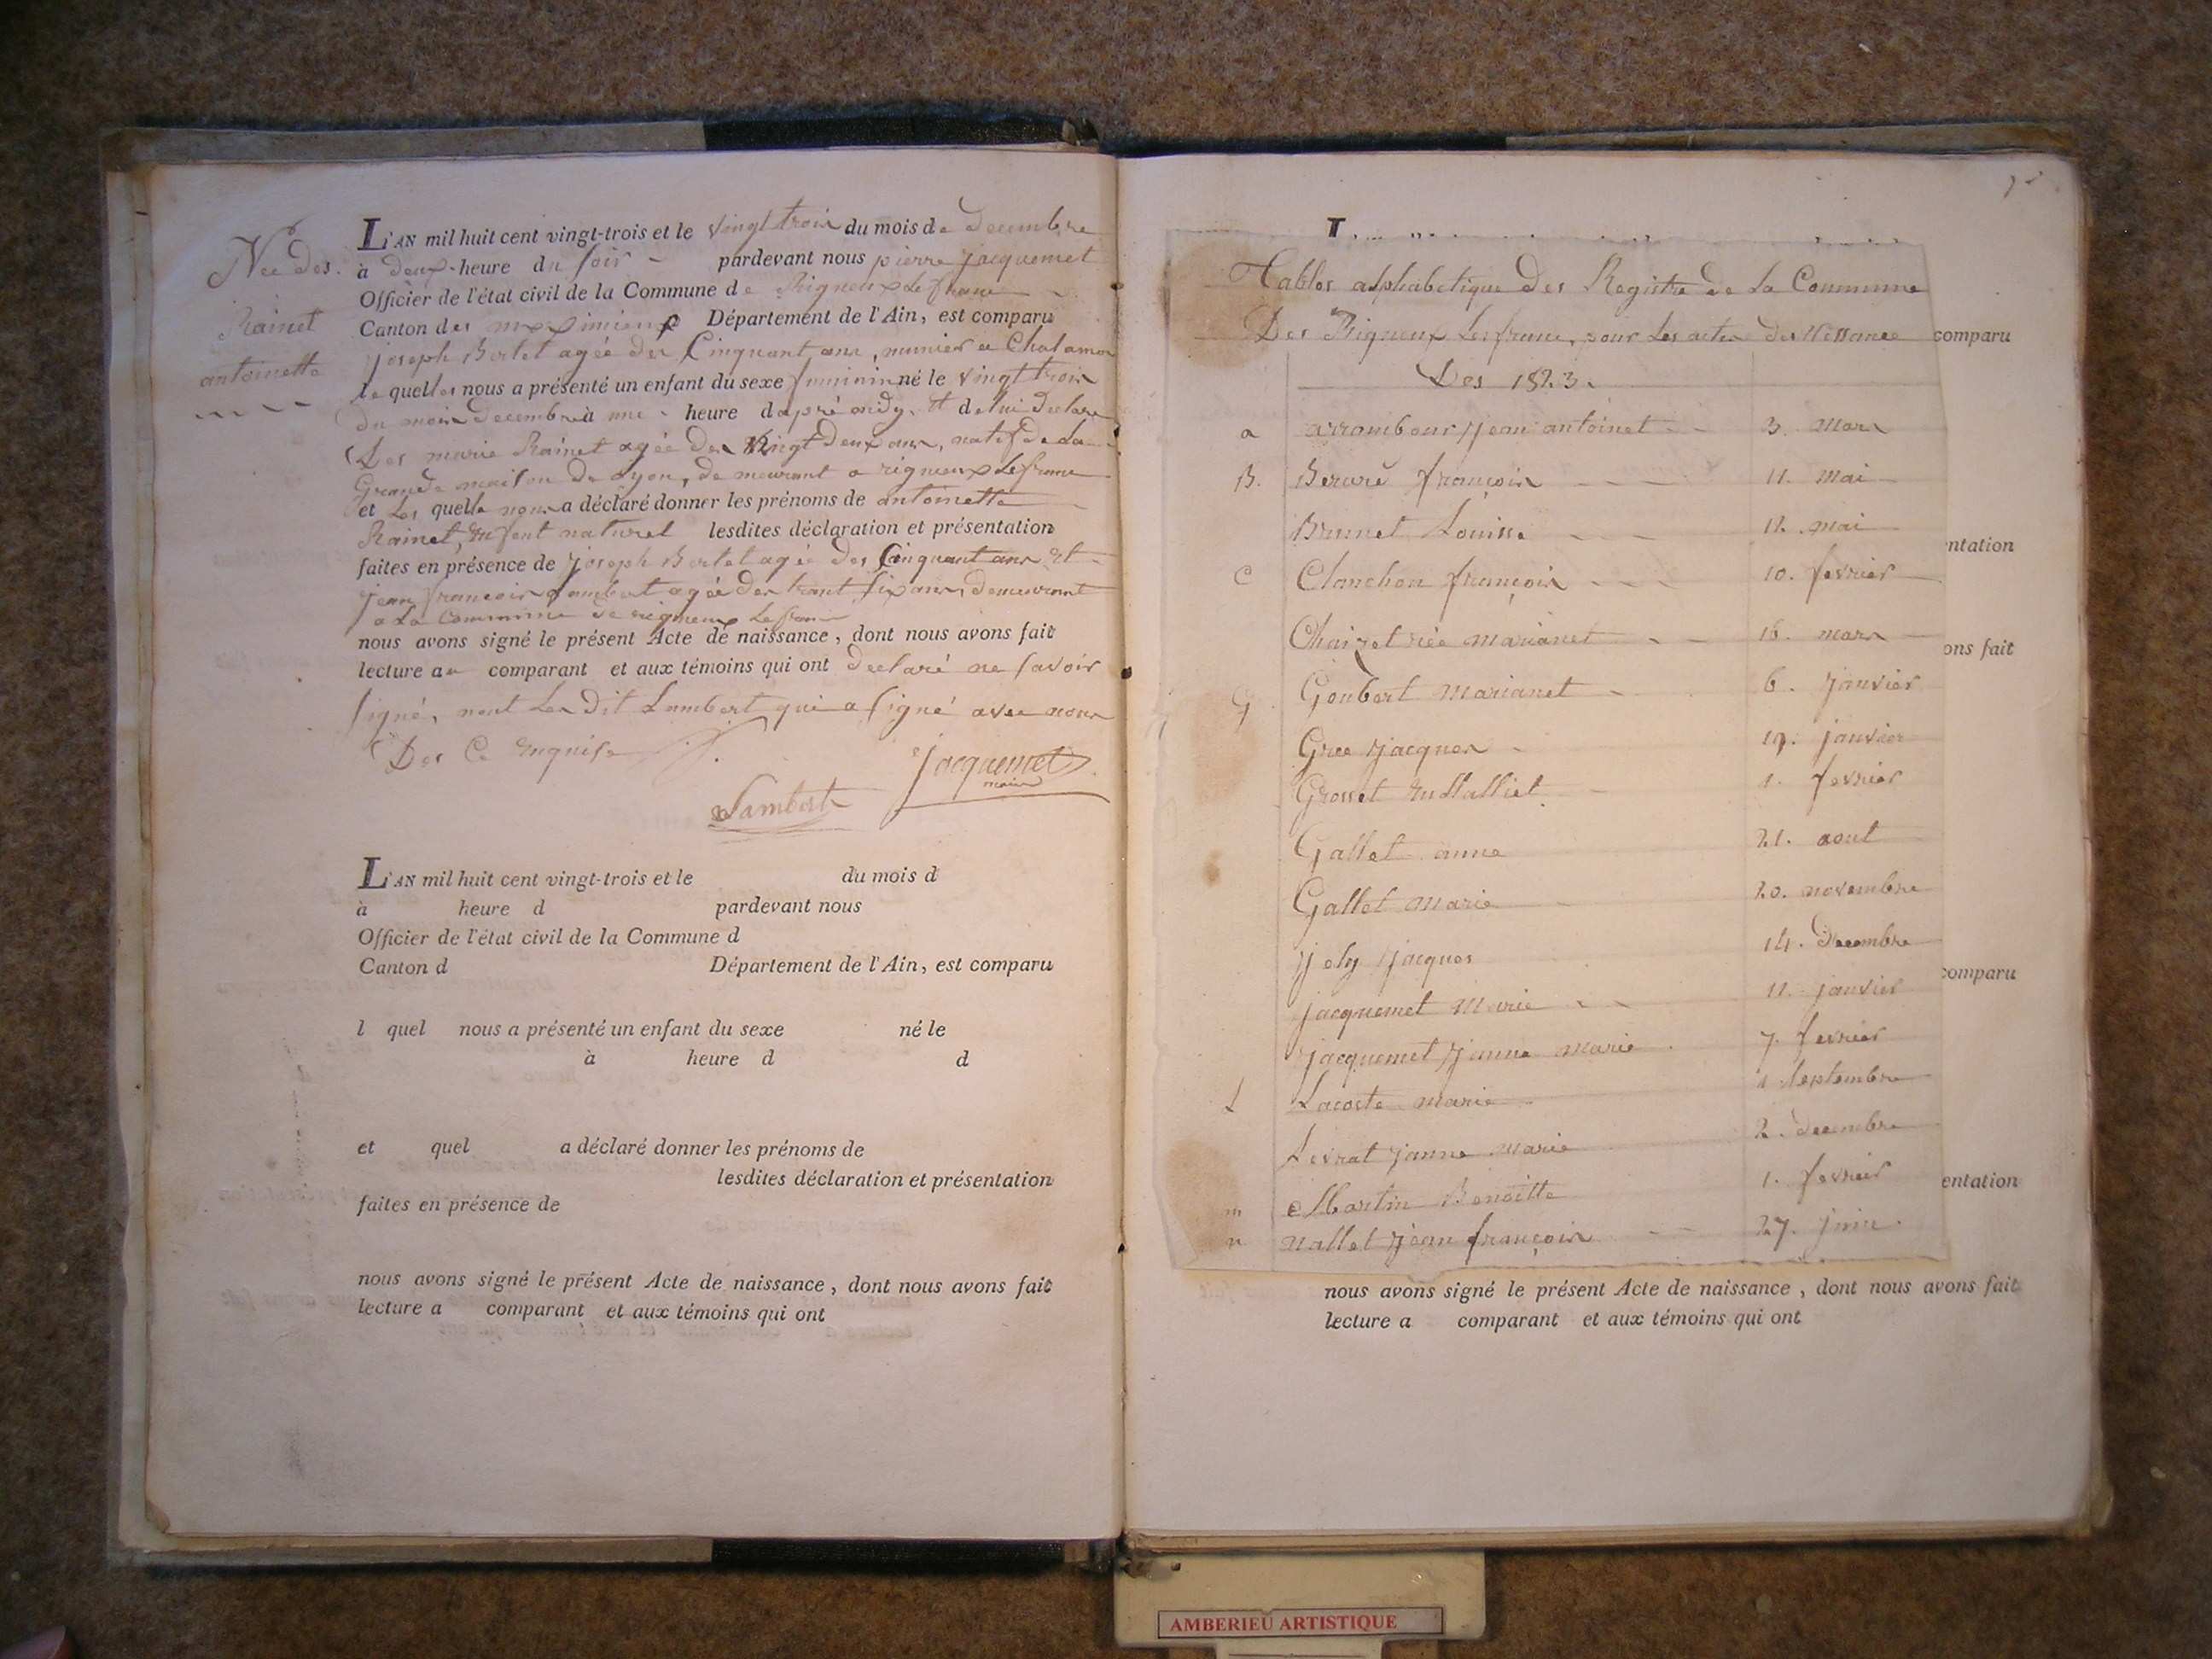 Née des.
Rainet
antoinette
L'AN mil huit cent vingt-trois et le vingt trois du mois de decembre
à deux heure du soir pardevant nous pierre jacquemet
Officier de l'état civil de la Commune de Rigneux Le franc
Canton des meximieux Département de l'Ain, est comparu
joseph Bertet agée des Cinquant ans, munier a Chalamon
le quelles nous a présenté un enfant du sexe feminin né le vingt trois
du mois decembre à une heure daprè midy. et de lui declare
Des marie Rainet agée des vingt deux ans, natif de La
Grande maison de Lyon, demeurant a rigneux Le franc
et Les quelle nous a déclaré donner les prénoms de antoinette
Rainet, enfent naturel lesdites déclaration et présentation
faites en présence de joseph Bertet agée des Cinquant ans et
jean francois Lambert agée des trant six ans, demeurant
a La Commune de rigneux Le franc
nous avons signé le présent Acte de naissance, dont nous avons fait
lecture au comparant et aux témoins qui ont declaré ne savoir
signé, nont Les dit Lambert qui a signé avec nous
Des Ce enquise
Jacquemet
maire
Lambert
L'AN mil huit cent vingt-trois et le du mois d
à heure d pardevant nous
Officier de l'état civil de la Commune d
Canton d Département de l'Ain, est comparu
l quel nous a présenté un enfant du sexe né le
à heure d d
et quel a déclaré donner les prénoms de
lesdites déclaration et présentation
faites en présence de
nous avons signé le présent Acte de naissance, dont nous avons fait
lecture a comparant et aux témoins qui ont
Tables alphabetique Des Registre de La Commune
Des Rigneux Les franc, pour Les actes des Nessance comparu
Des 1823.
a arrambour jean antoinet 3. mars
B. Beraré françois 11. mai
Brunet Louise 12. mai
entation
C Clanchon françois 10. fevrier
Chairetrée marianet 16. mars
ons fait
G Goubert marianet 6. janvier
Gree jacques 19. janvier
Grosset 1. fevrier
Gallet anne 21. aout
Gallet marie 20. novembre
joly jacques 14. Decembre
comparu
jacquemet Marie 11. janvier
jacquemet janne marie 7. fevrier
L Lacoste marie 1 septembre
Levrat janne marie 2. decembre
m Martin Benoitte 1. fevrier
entation
n nallet jean françois 27. juin
nous avons signé le présent Acte de naissance, dont nous avons fait
lecture a comparant et aux témoins qui ont
AMBERIEU ARTISTIQUE